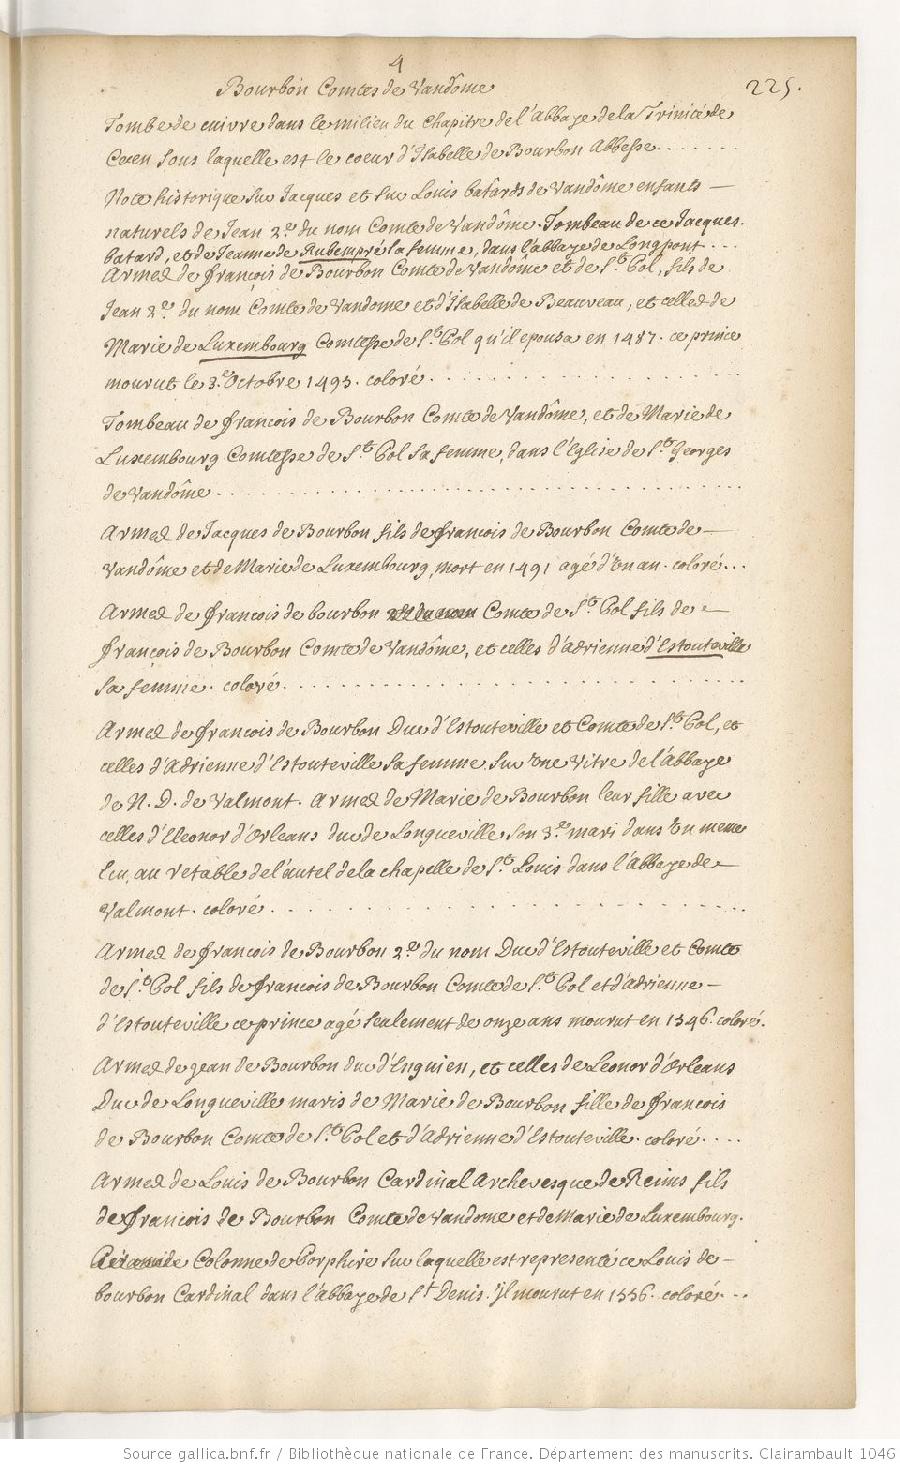 4
Bourbon Comtes de Vandôme
225.
Tombe de cuivre dans le milieu du chapitre de l'abbaye de la Trinité de
Caen sous laquelle est le coeur d'Isabelle de Bourbon Abbesse......
Note historique sur Jacques et sur Louis batards de Vandôme enfants —
naturels de Jean 2.e du nom Comte de Vandôme. Tombeau de ce Jacques.
batard, et de Jeanne de Rubempré sa femme, dans l'abbaye de Longpont...
Armes de françois de Bourbon Comte de Vandôme et de St. Pol, fils de
Jean 2.e du nom Comte de Vandome et d'Isabelle de Beauveau, et celles de
Marie de Luxembourg Comtesse de St. Pol qu'il epousa en 1487. ce prince
mourut le 3.e Octobre 1495. coloré.
Tombeau de françois de Bourbon Comte de Vandôme, et de Marie de
Luxembourg Comtesse de St. Pol sa femme, dans l'Eglise de St. Georges
de Vandôme
Armes de Jacques de Bourbon fils de françois de Bourbon Comte de —
Vandôme et de Marie de Luxembourg, mort en 1491 agé d'un an. coloré...
Armes de françois de bourbon Comte de St. Pol fils de —
françois de Bourbon Comte de Vandôme, et celles d'adrienne d'Estouteville
sa femme. coloré.
Armes de françois de Bourbon Duc d'Estouteville et Comte de St. Pol, et
celles d'Adrienne d'Estouteville sa femme. sur une Vitre de l'Abbaye
de N. D. de Valmont. Armes de Marie de Bourbon leur fille avec
celles d'Eleonor d'Orleans duc de Longueville son 3.e mari dans un meme
lieu, au retable de l'autel de la chapelle de St. Louis dans l'Abbaye de —
Valmont. coloré.
Armes de françois de Bourbon 2.e du nom Duc d'Estouteville et Comte
de St. Pol fils de françois de Bourbon Comte de St. Pol et d'adrienne —
d'Estouteville ce prince agé seulement de onze ans mourut en 1546. coloré.
Armes de jean de Bourbon duc d'Enguien, et celles de Leonor d'Orleans
Duc de Longueville maris de Marie de Bourbon fille de françois
de Bourbon Comte de St. Pol et d'Adrienne d'Estouteville. coloré....
Armes de Louis de Bourbon Cardinal Archevesque de Reims fils
de françois de Bourbon Comte de Vandome et de Marie de Luxembourg.
Colonne de Porphire sur laquelle est representé ce Louis de —
bourbon Cardinal dans l'abbaye de St Denis. Il mourut en 1556. coloré...
Source gallica.bnf.fr / Bibliothèque nationale de France. Département des manuscrits. Clairambault 1046